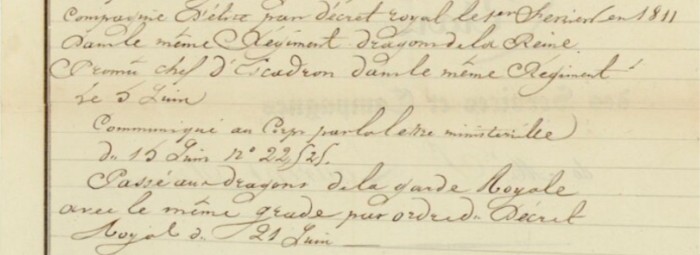 Compagnie d'élite par décret royal le 1er Fevrier en 1811
dans le même Régiment dragons de la Reine.
Promu chef d'Escadron dans le même Régiment
le 5 Juin
Communiqué au Corps par la lettre ministerielle
du 15 Juin n° 22525.
Passé aux dragons de la garde Royale
avec le même grade par ordre du Décret
Royal du 21 Juin